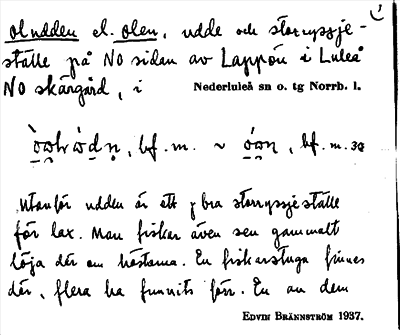 oludden el. olen, udde och storryssje-
ställe på NO sidan av Lappön i Luleå
NO skärgård, i Nederluleå sn o. tg Norrb. l.
bf. m. ~ bf. m. 3a
Utanför udden är ett bra storryssjeställe
för lax. Man fiskar även sen gammalt
löja där om höstarna. En fiskarstuga finnes
där, flera ha funnits förr. En au dem
EDVIN BRÄNNSTRÖM 1937.